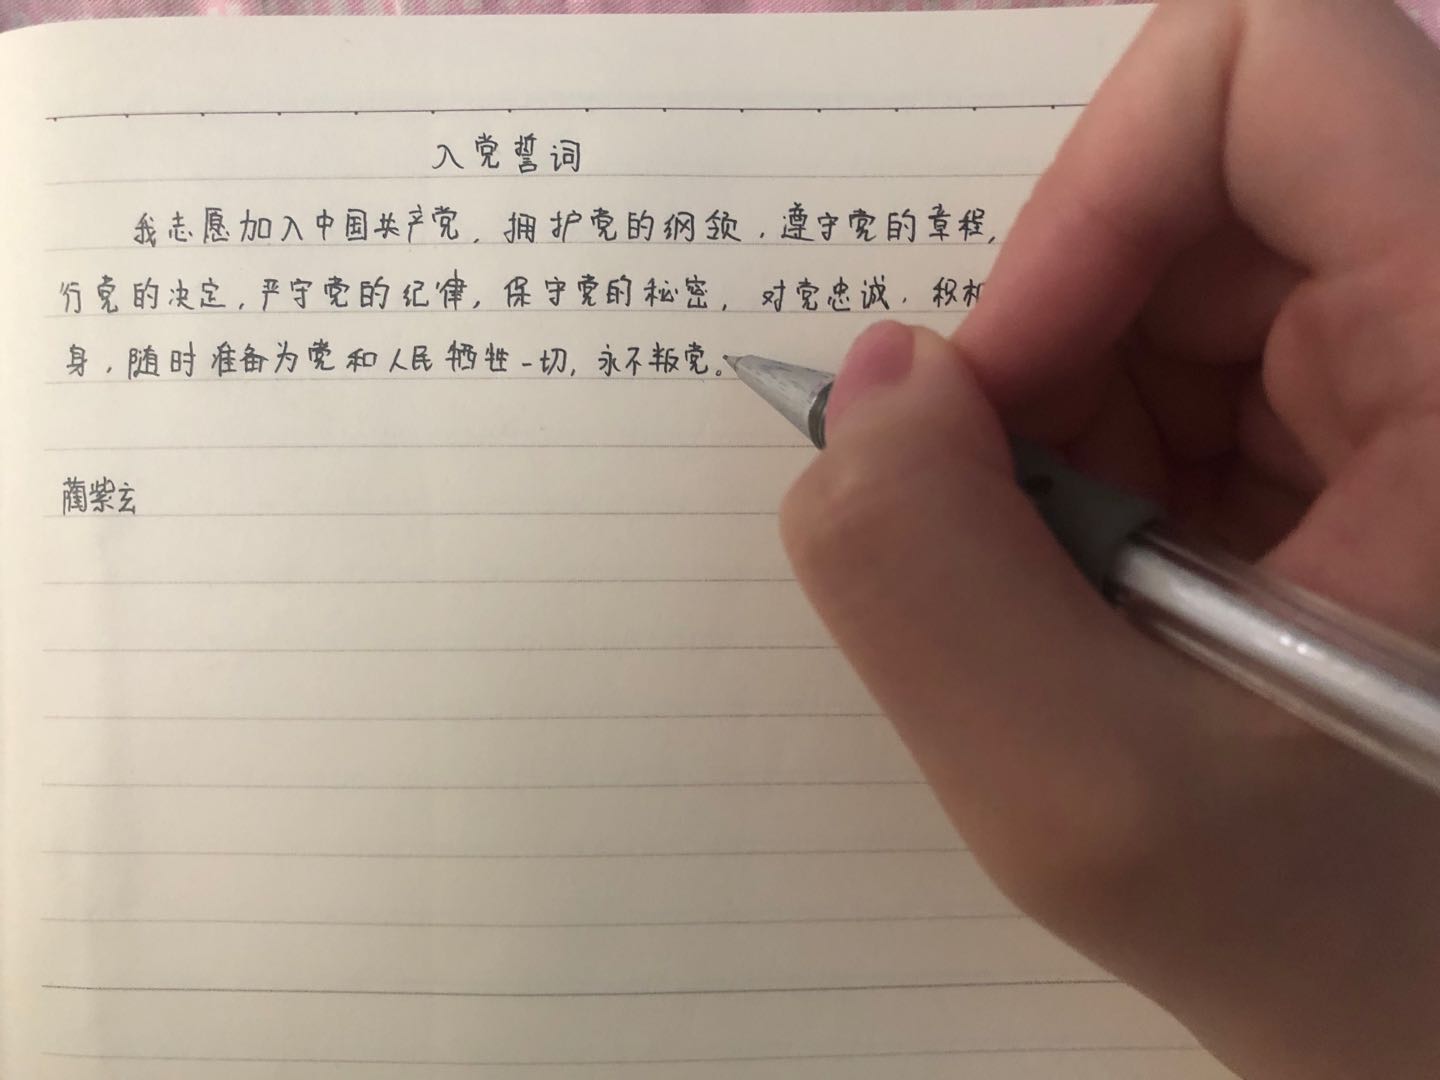 入党誓词
我志愿加入中国共产党，拥护党的纲领，遵守党的章程，
行党的决定，严守党的纪律，保守党的秘密，对党忠诚，积
身，随时准备为党和人民牺牲一切，永不叛党。
蔺紫玄